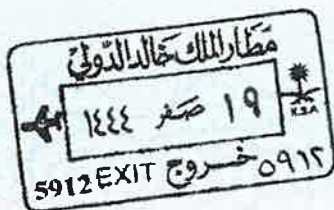 مطار الملك خالد الدولي
١٩ صفر ١٤٤٤
K.S.A
5912 EXIT خروج ٥٩١٢